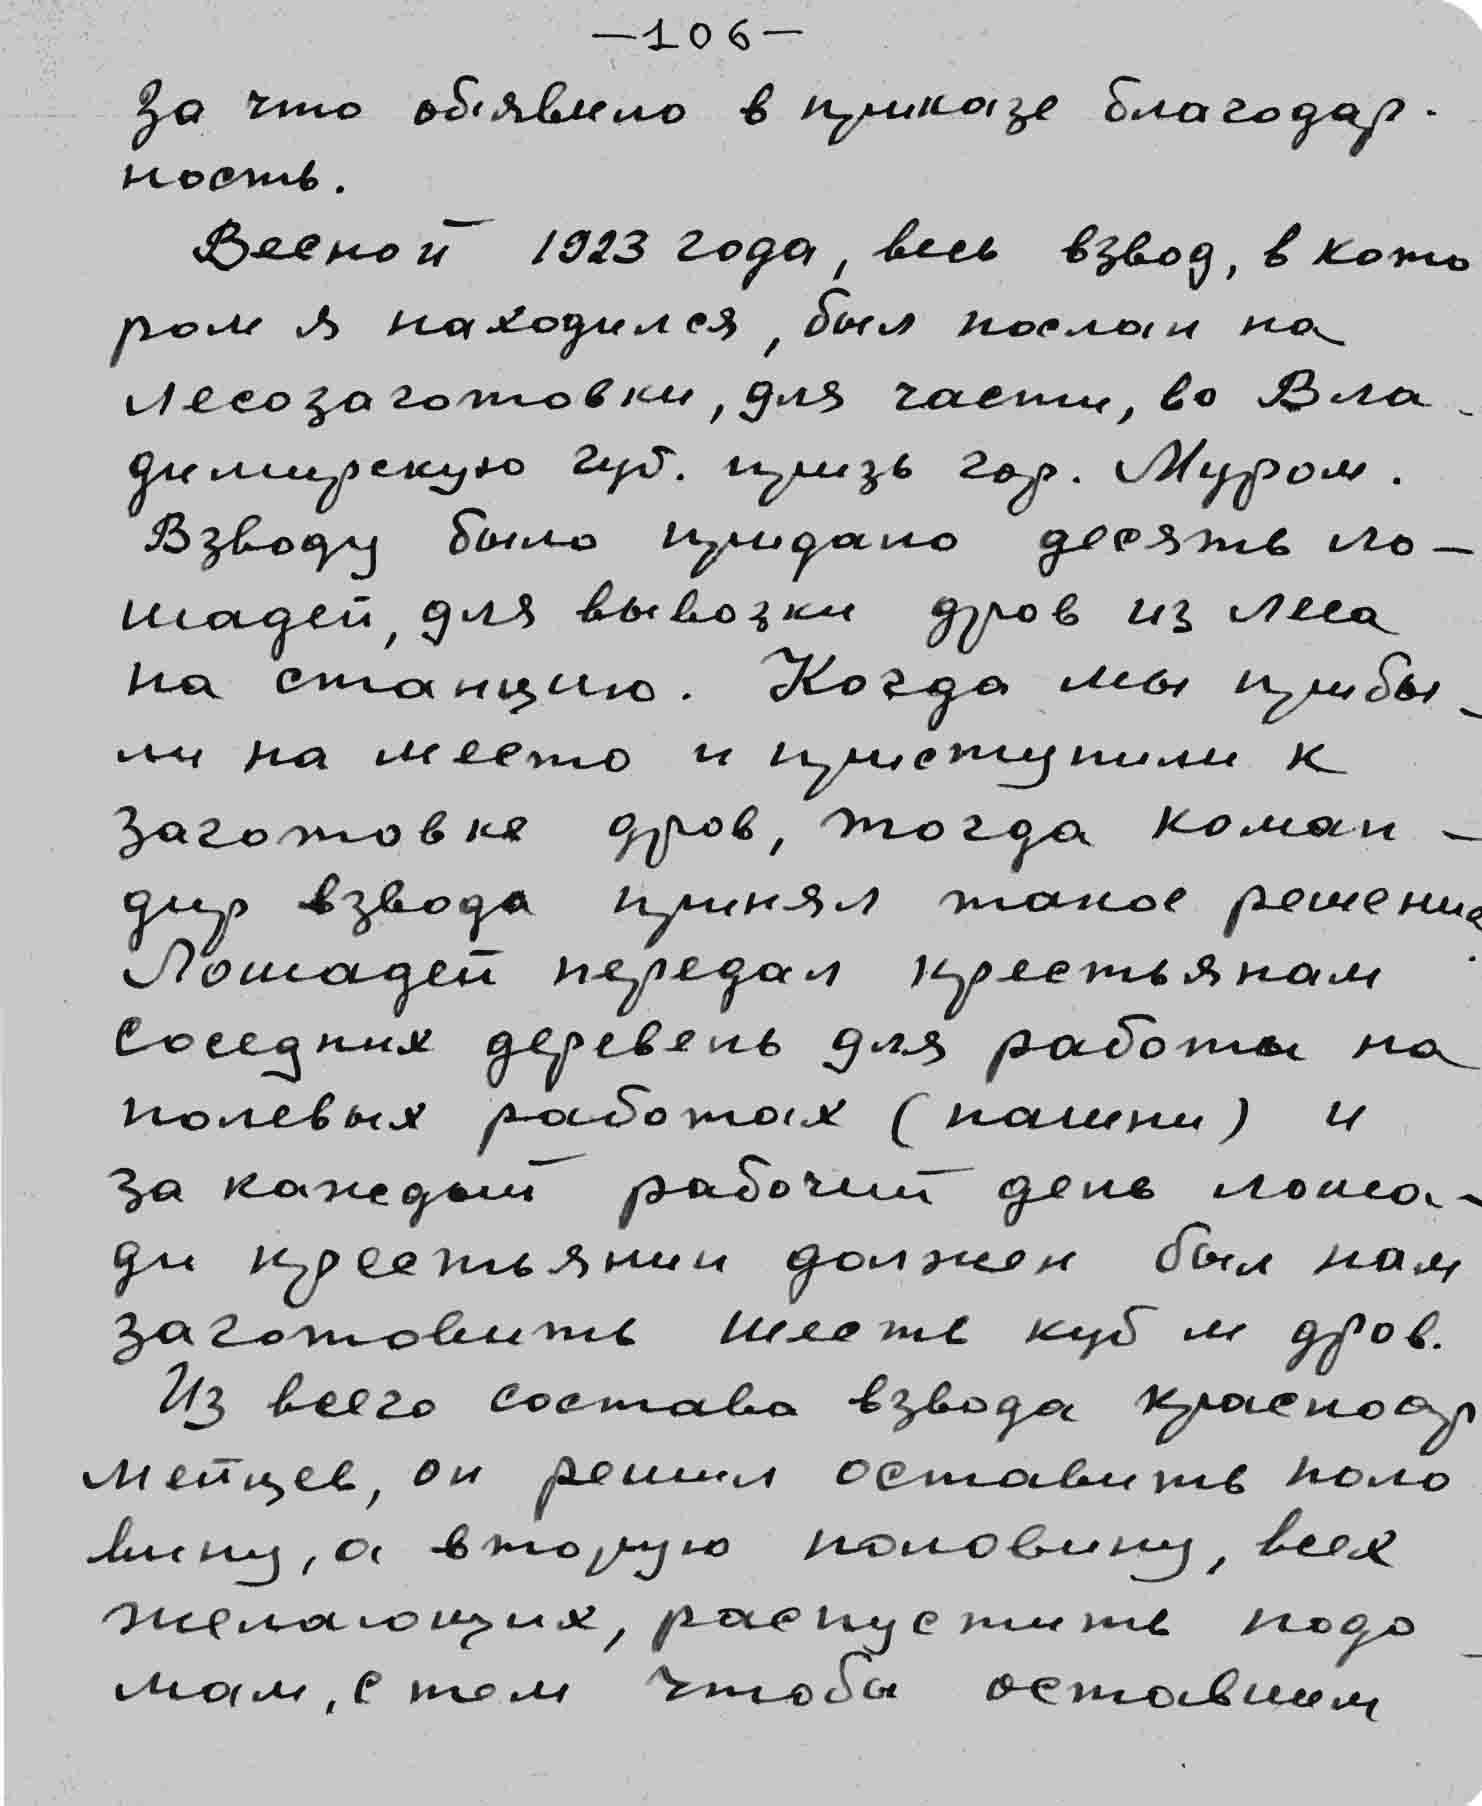 —106—
За что обиявило в приказе благодар-
ность.
Весной 1923 года, весь взвод, в кото
ром я находился, был послан на
лесозаготовки, для части, во Вла-
димирскую губ. призь гор. Муром.
Взводу было придано десять ло-
шадей, для вывозки дров из леса
на станцию. Когда мы прибы-
ли на место и приступили к
заготовке дров, тогда коман-
дир взвода принял такое решение.
Лошадей передал крестьянам
соседних деревень для работы на
полевых работах (пашни) и
за каждый рабочий день лоша-
ди крестьянин должен был нам
заготовить шесть куб м дров.
Из всего состава взвода красноар
мейцев, он решил оставить поло
вину, а вторую половину, всех
желающих, распустить подо-
мам, с тем чтобы оставшим